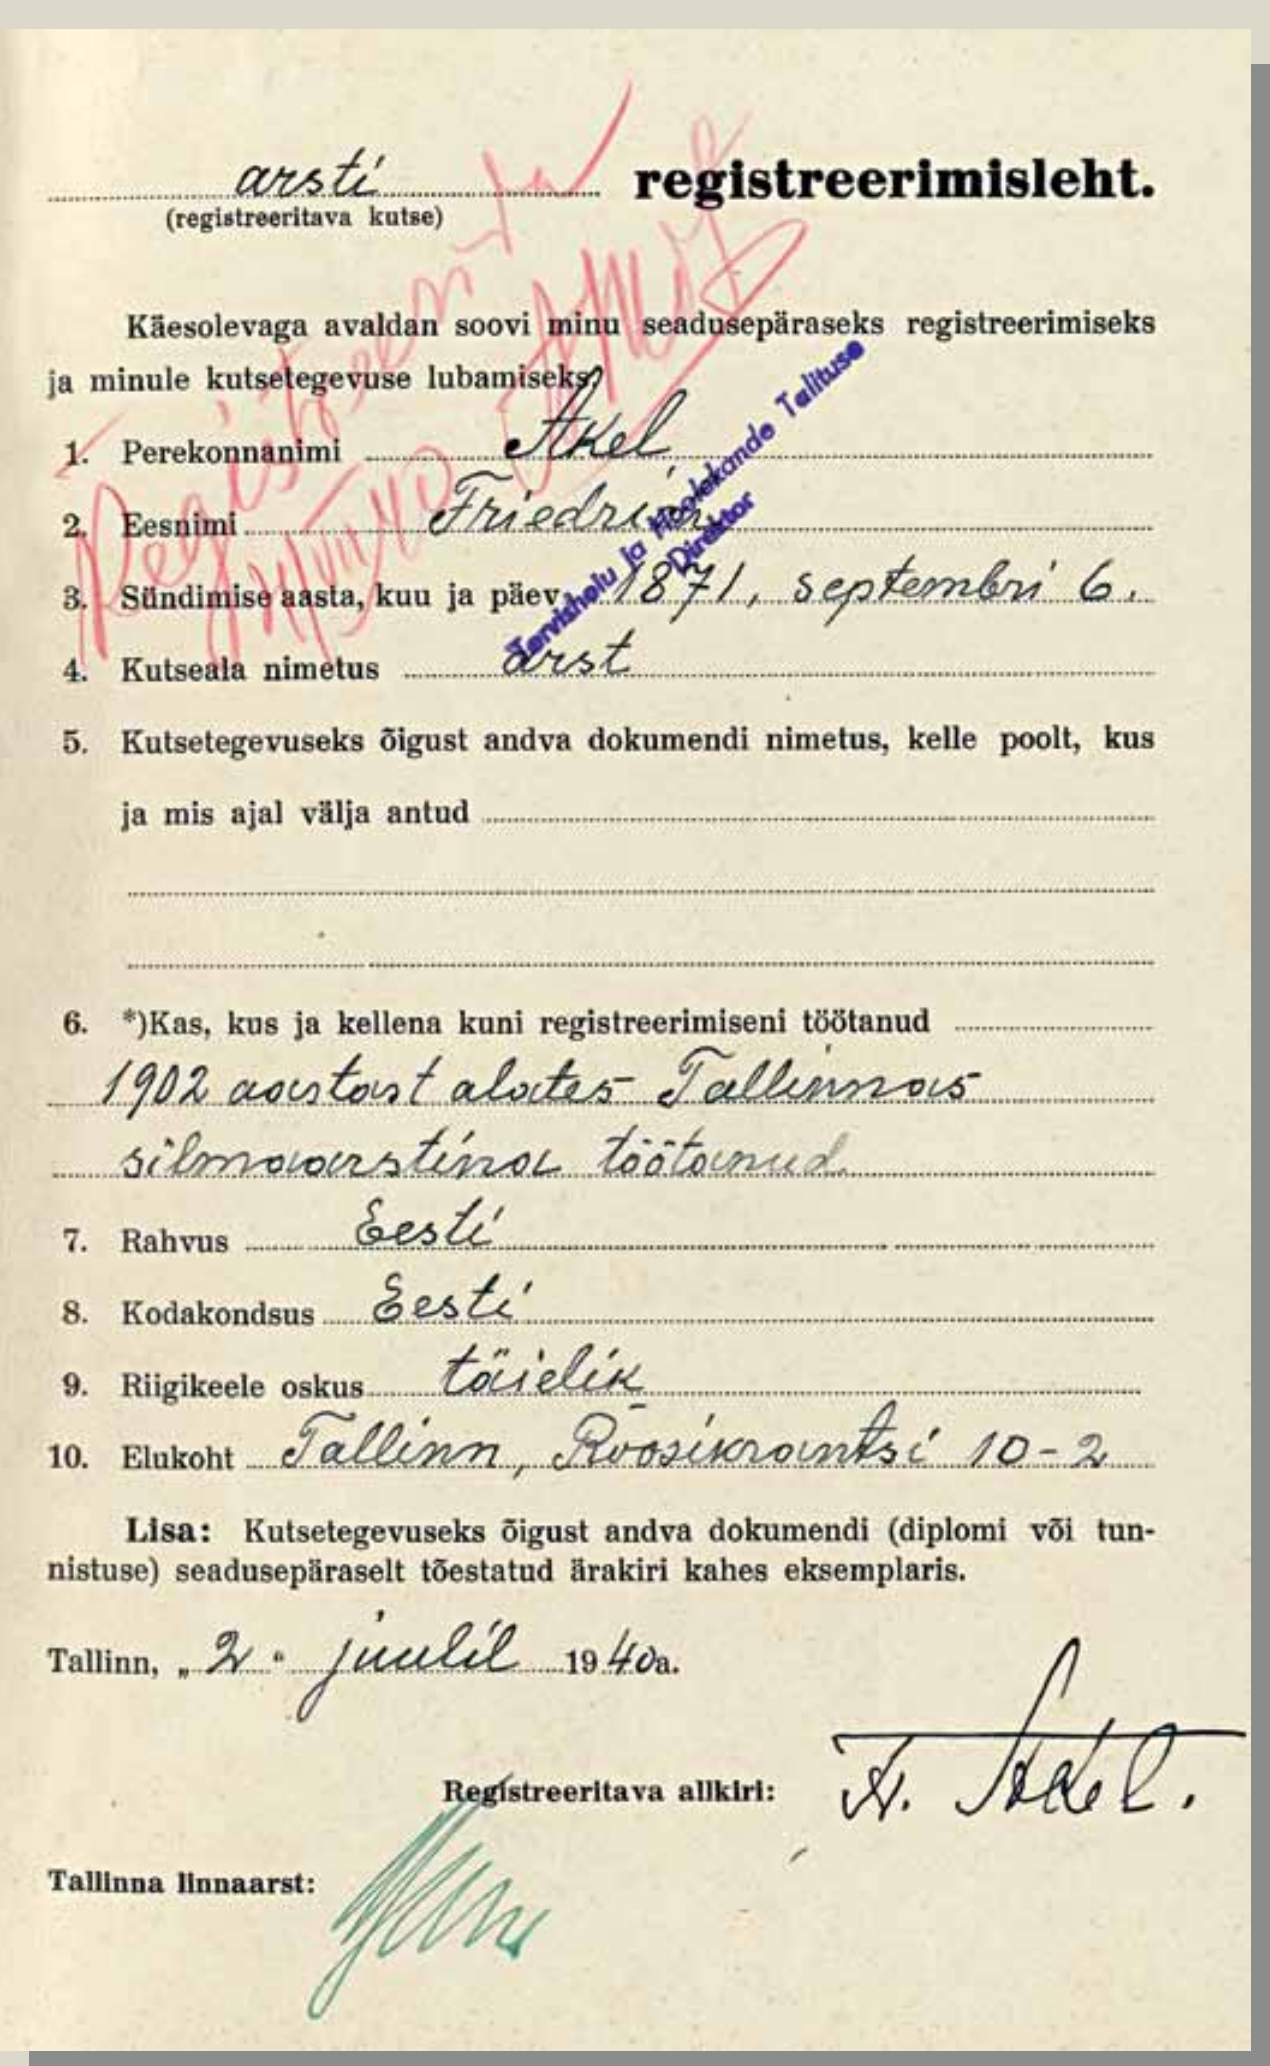 arsti registreerimisleht.
(registreeritava kutse)
Käesolevaga avaldan soovi minu seadusepäraseks registreerimiseks
ja minule kutsetegevuse lubamiseks,
1. Perekonnanimi Akel
2. Eesnimi Friedrich
3. Sündimise aasta, kuu ja päev 1871, septembri 6.
4. Kutseala nimetus arst
Tervishoiu ja Hoolekande Talituse
Direktor
5. Kutsetegevuseks õigust andva dokumendi nimetus, kelle poolt, kus
ja mis ajal välja antud
6. *)Kas, kus ja kellena kuni registreerimiseni töötanud
1902 aastast alates Tallinnas
silmaarstina töötanud
7. Rahvus Eesti
8. Kodakondsus Eesti
9. Riigikeele oskus täielik
10. Elukoht Tallinn, Roosikrantsi 10-2
Lisa: Kutsetegevuseks õigust andva dokumendi (diplomi või tun-
nistuse) seadusepäraselt tõestatud ärakiri kahes eksemplaris.
Tallinn, „2" juulil 1940a.
Registreeritava allkiri: Fr. Akel.
Tallinna linnaarst: